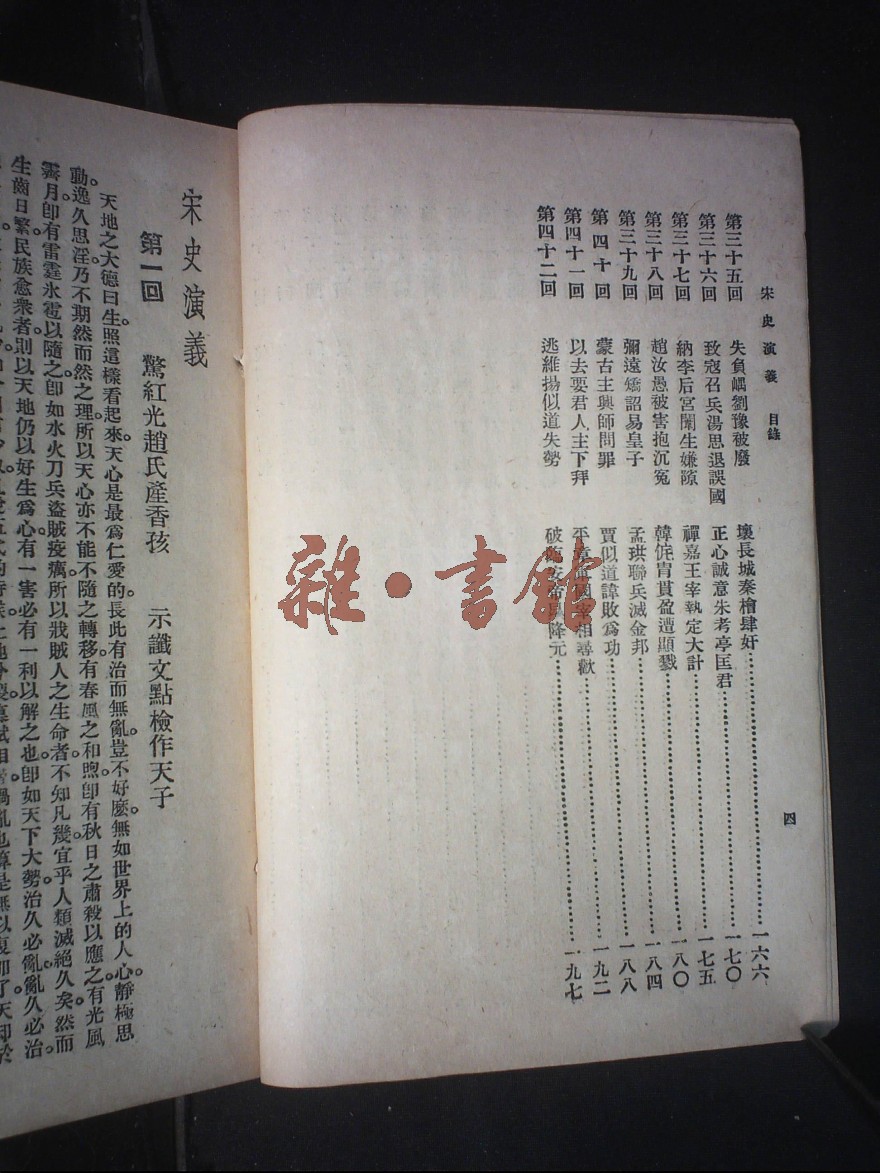 宋史演義 目錄
第三十五回 失負嵎劉豫被廢 壞長城秦檜肆奸 一六六
第三十六回 致寇召兵湯思退誤國 正心誠意朱考亭匡君 一七〇
第三十七回 納李后宮闈生嫌隙 禪嘉王宰執定大計 一七五
第三十八回 趙汝愚被害抱沉冤 韓侂胄貫盈遭顯戮 一八〇
第三十九回 彌遠矯詔易皇子 孟珙聯兵滅金邦 一八四
第四十回 蒙古主興師問罪 賈似道諱敗爲功 一八八
第四十一回 以去要君人主下拜 平章國宰相尋歡 一九二
第四十二回 逃維揚似道失勢 破臨安帝降元 一九七
四
雜·書館
宋史演義
第一回 驚紅光趙氏產香孩 示讖文點檢作天子
天地之大德曰生。照這樣看起來。天心是最爲仁愛的。長此有治而無亂。豈不好麼。無如世界上的人心。靜極思
動。逸久思淫。乃不期然而然之理。所以天心亦不能不隨之轉移。有春風之和煦。卽有秋日之肅殺以應之。有光風
霽月。卽有雷霆氷雹以隨之。卽如水火刀兵盜賊疫癘。所以戕賊人之生命者。不知凡幾。宜乎人類滅絕久矣。然而
生齒日繁。民族愈衆者。則以天地仍以好生爲心。有一害必有一利以解之也。卽如天下大勢。治久必亂。亂久必治